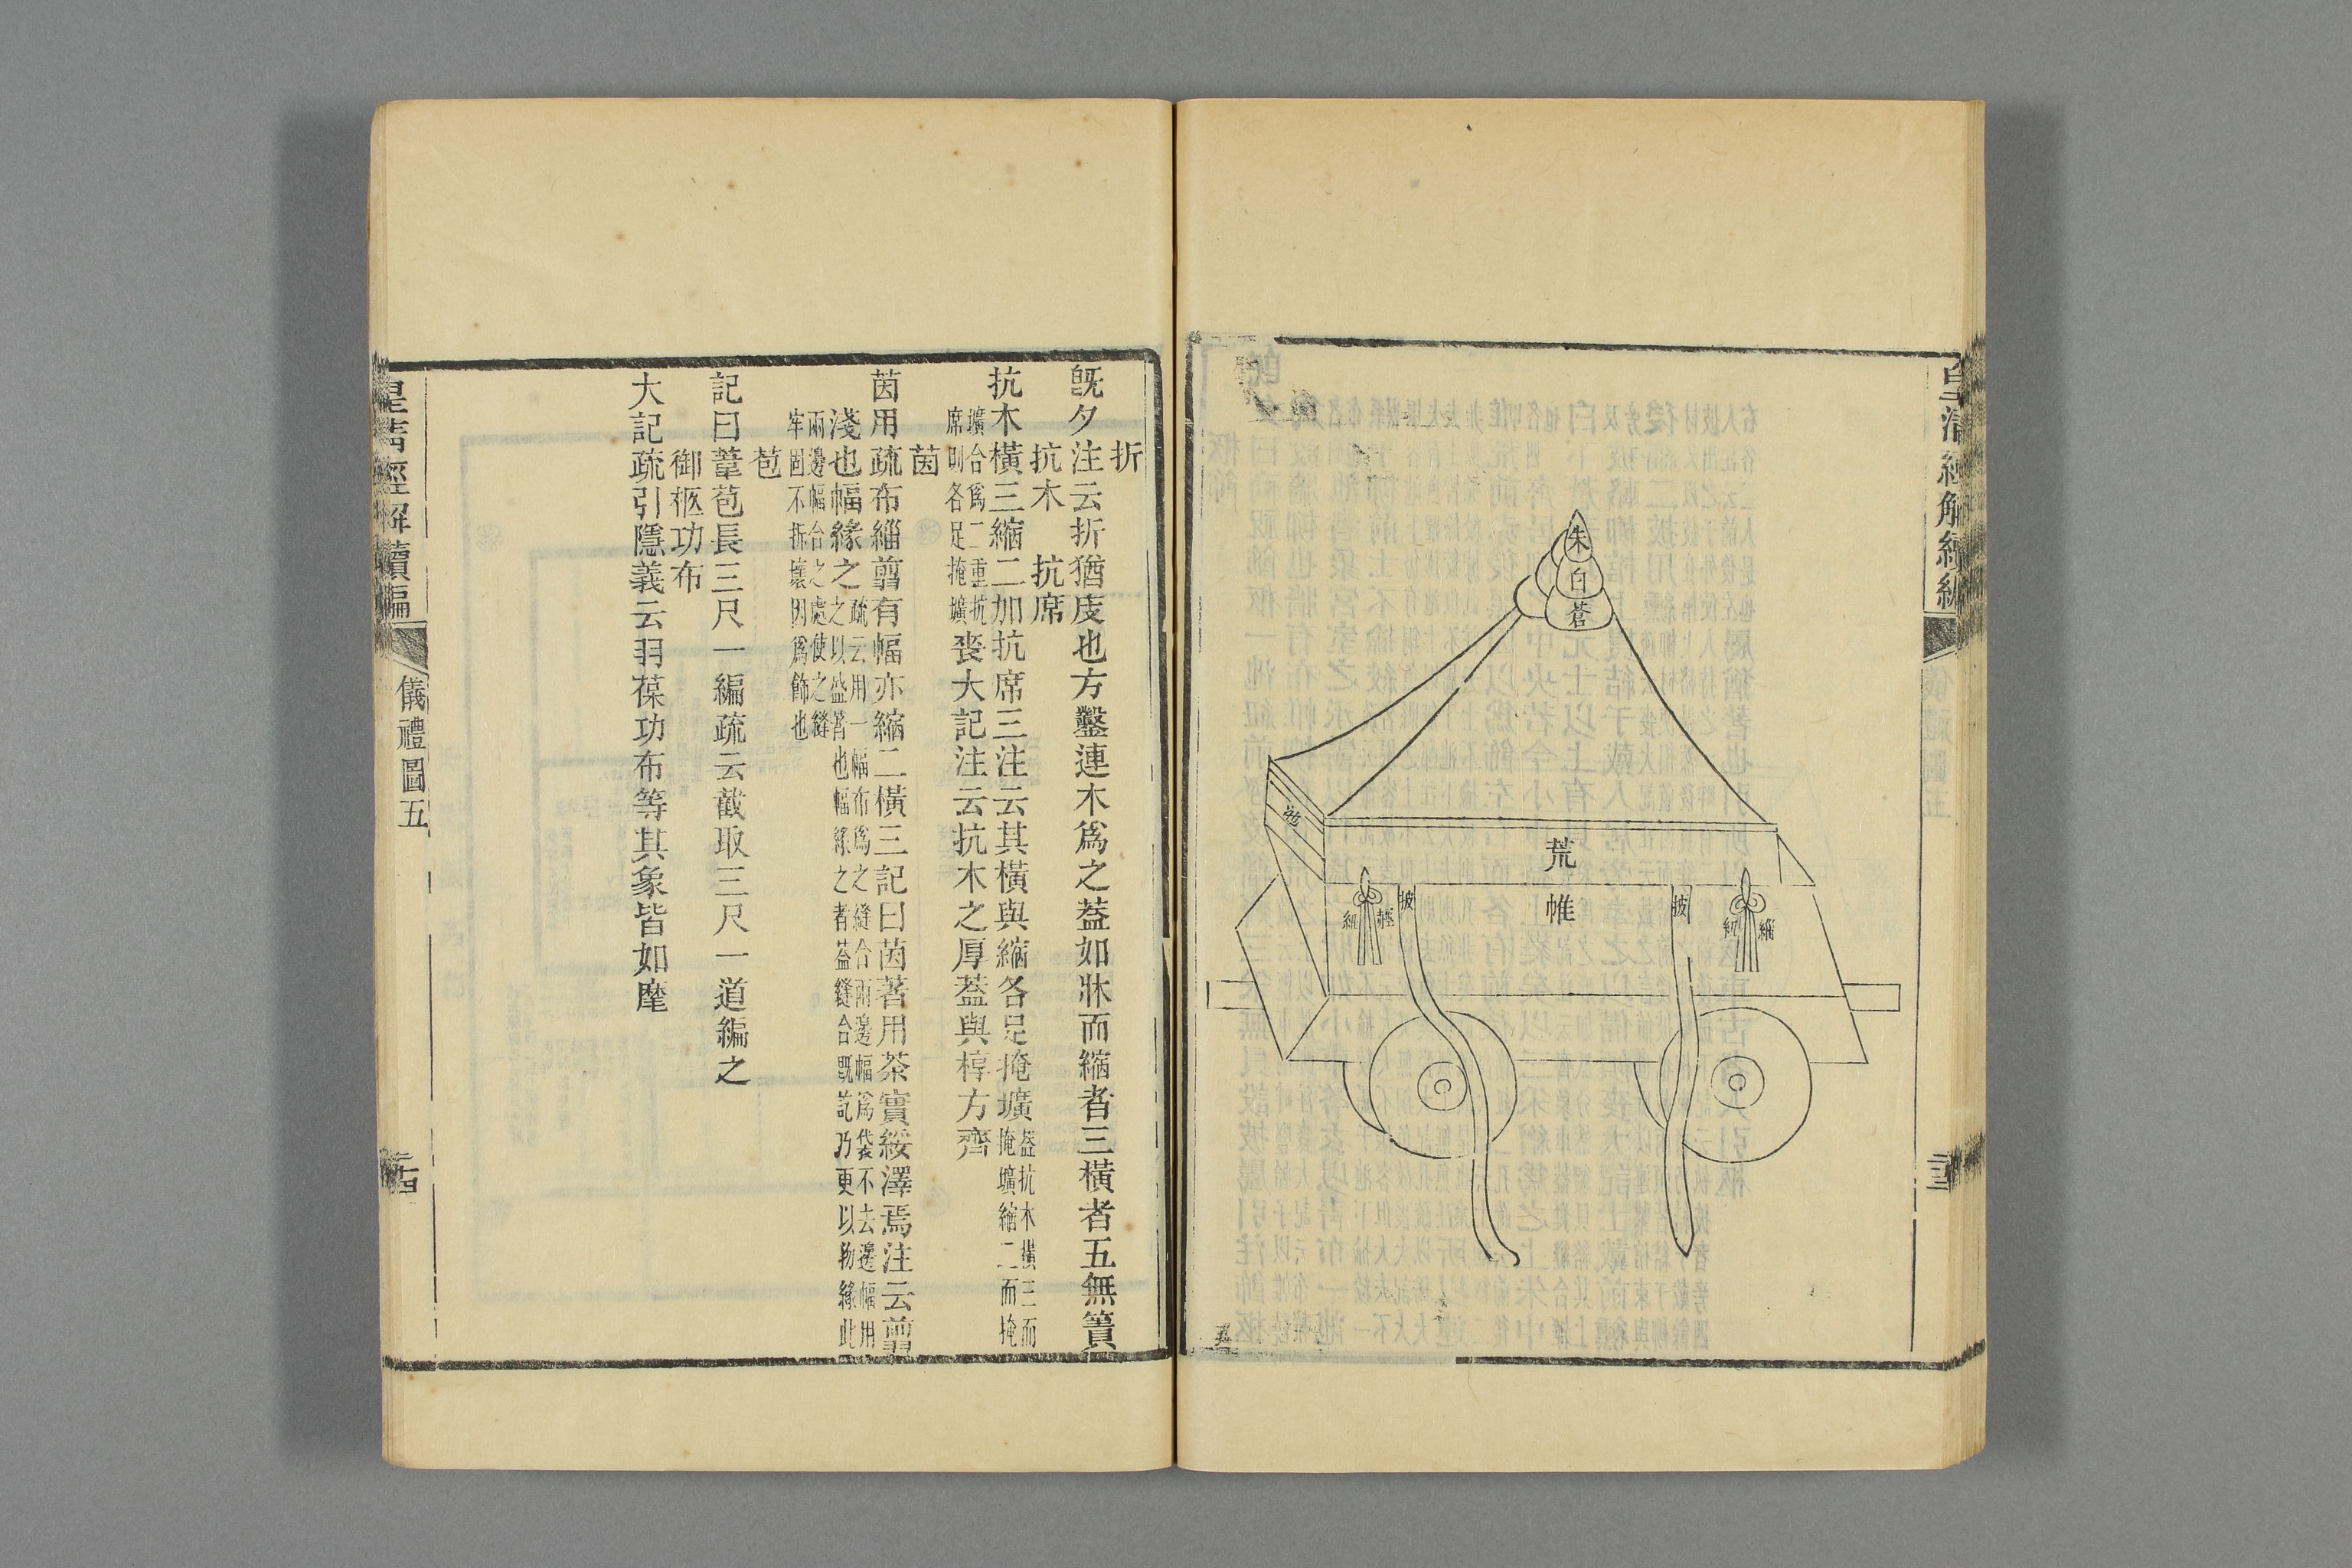 皇清經解續編
朱
白
蒼
荒
帷
披
披
紐
䞓
紐
緇
折
既夕注云折猶庋也方鑿連木爲之葢如牀而縮者三橫者五無簀
抗木　抗席
抗木橫三縮二加抗席三注云其橫與縮各足掩壙
葢抗木橫三而
掩壙縮二而掩
壙合爲二重抗
席則各足掩壙
喪大記注云抗木之厚葢與椁方齊
茵
茵用疏布緇翦有幅亦縮二橫三記曰茵著用荼實綏澤焉注云翦
淺也幅緣之
疏云用一幅布爲之縫合兩邊幅爲袋不去邊幅用
之以盛著也幅緣之者葢縫合既訖乃更以物緣此
兩邊幅合之處使之縫
牢固不拆壞因爲飾也
苞
記曰葦苞長三尺一編疏云截取三尺一道編之
御柩功布
大記疏引隱義云羽葆功布等其象皆如麾
皇清經解續編
儀禮圖五